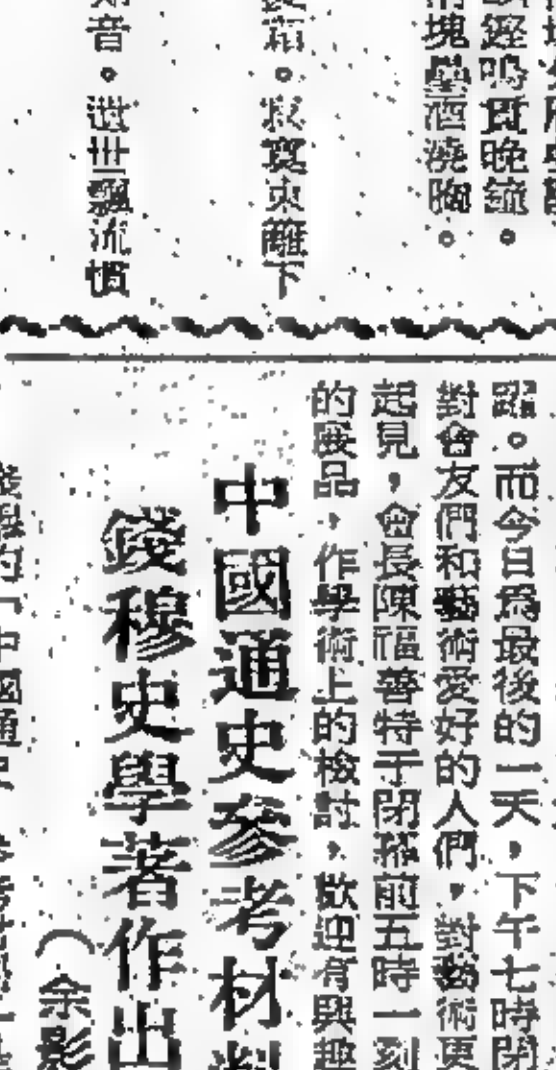 鳴貫晚鐘。
塊壘酒澆胸。
寂寞東籬下
音。遯世飄流慣
躍。而今日爲最後的一天,下午七時閉
對會友們和藝術愛好的人們,對藝術更
起見,會長陳福善特于閉幕前五時一刻
的展品,作學術上的檢討,歡迎有興趣
中國通史參考材料
錢穆史學著作出
(余影
的「中國通史